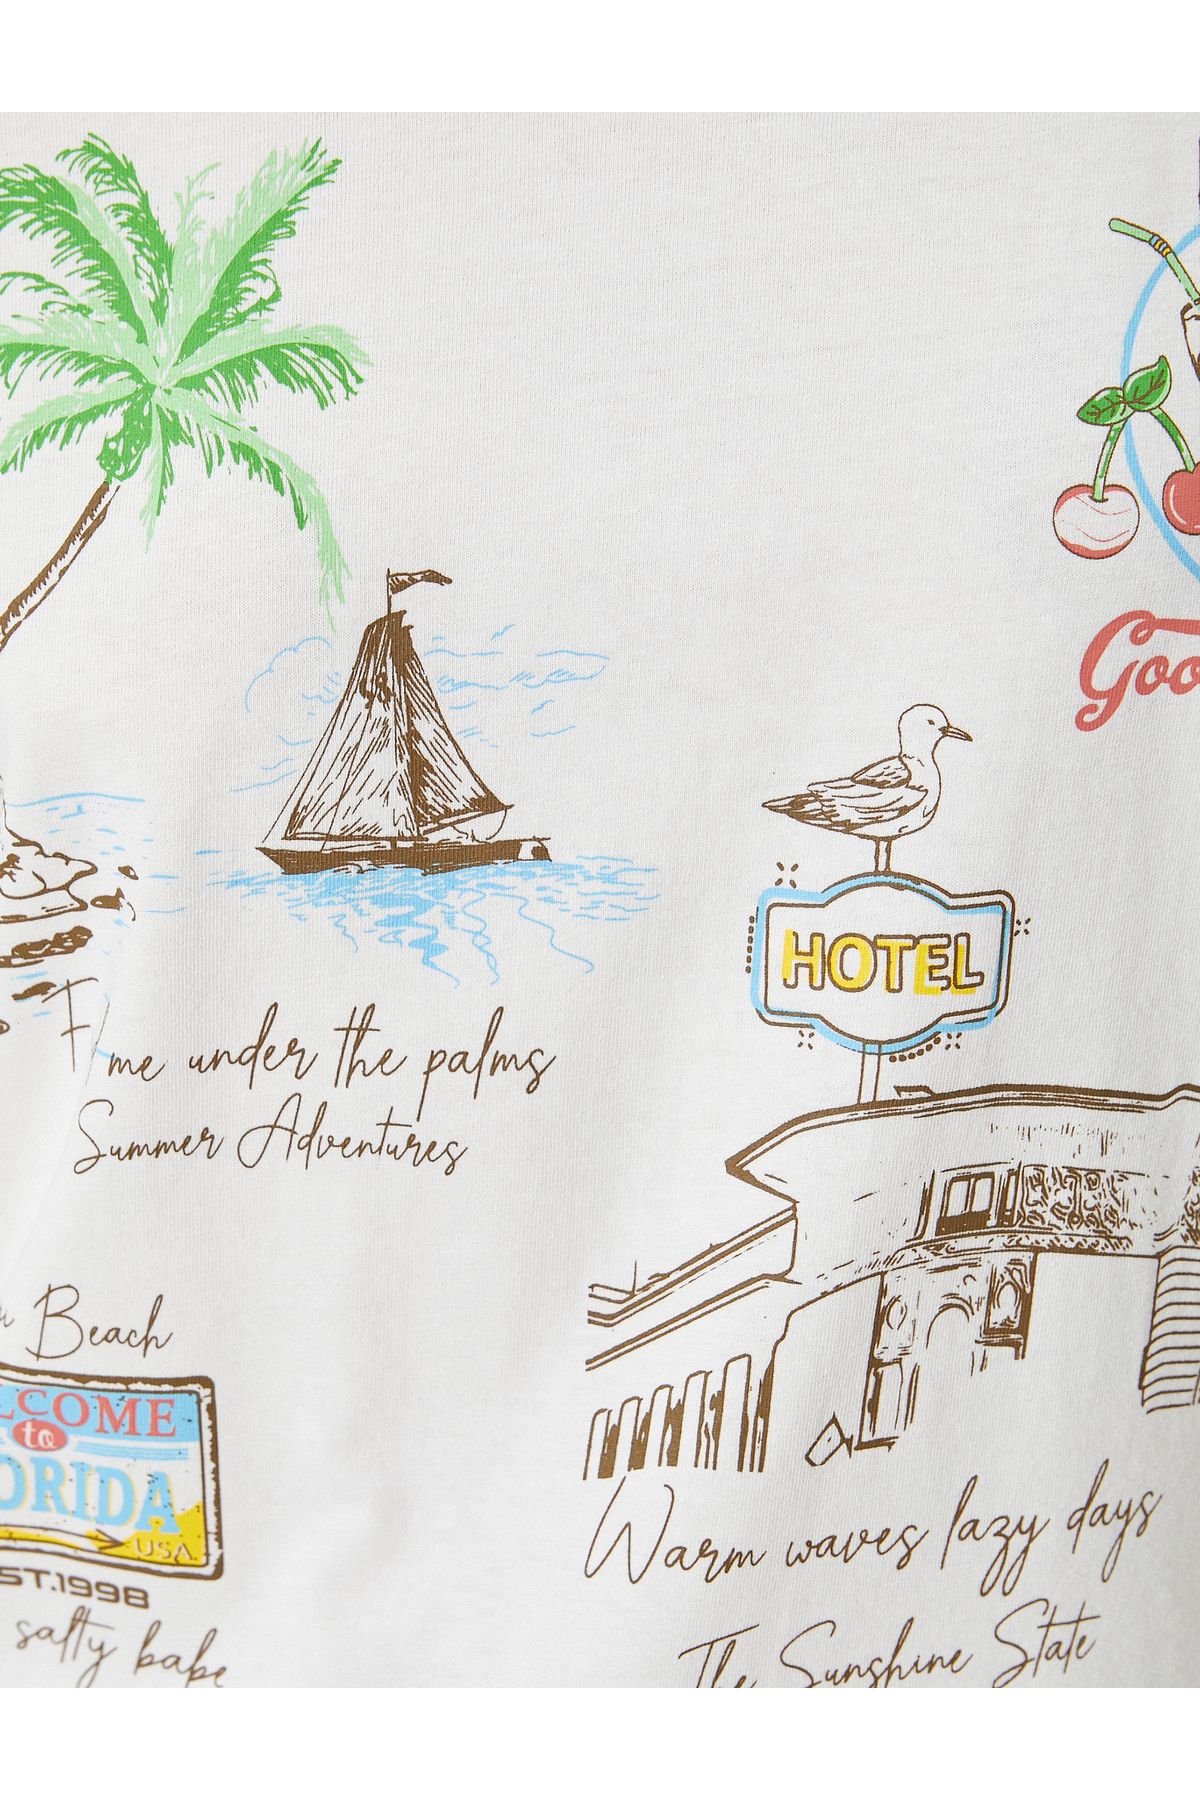 Goo
HOTEL
Time under the palms
Summer Adventures
Beach
LCOME
to
ORIDA
USA
ST.1998
salty babe
Warm waves lazy days
The Sunshine State